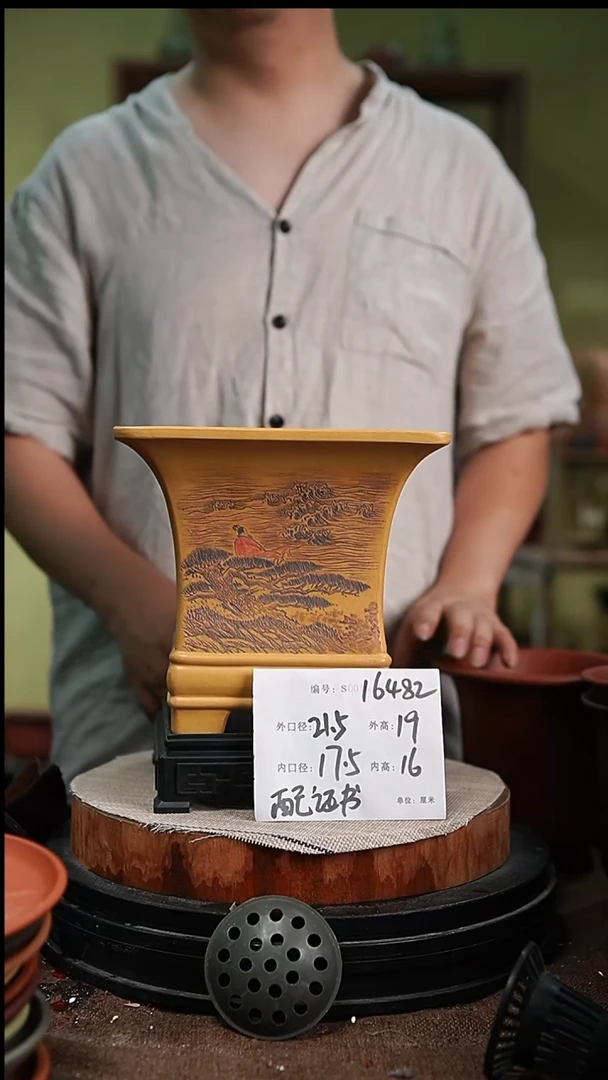 编号: S00116482
外口径: 21.5 外高: 19
内口径: 17.5 内高: 16
配证书 单位: 厘米